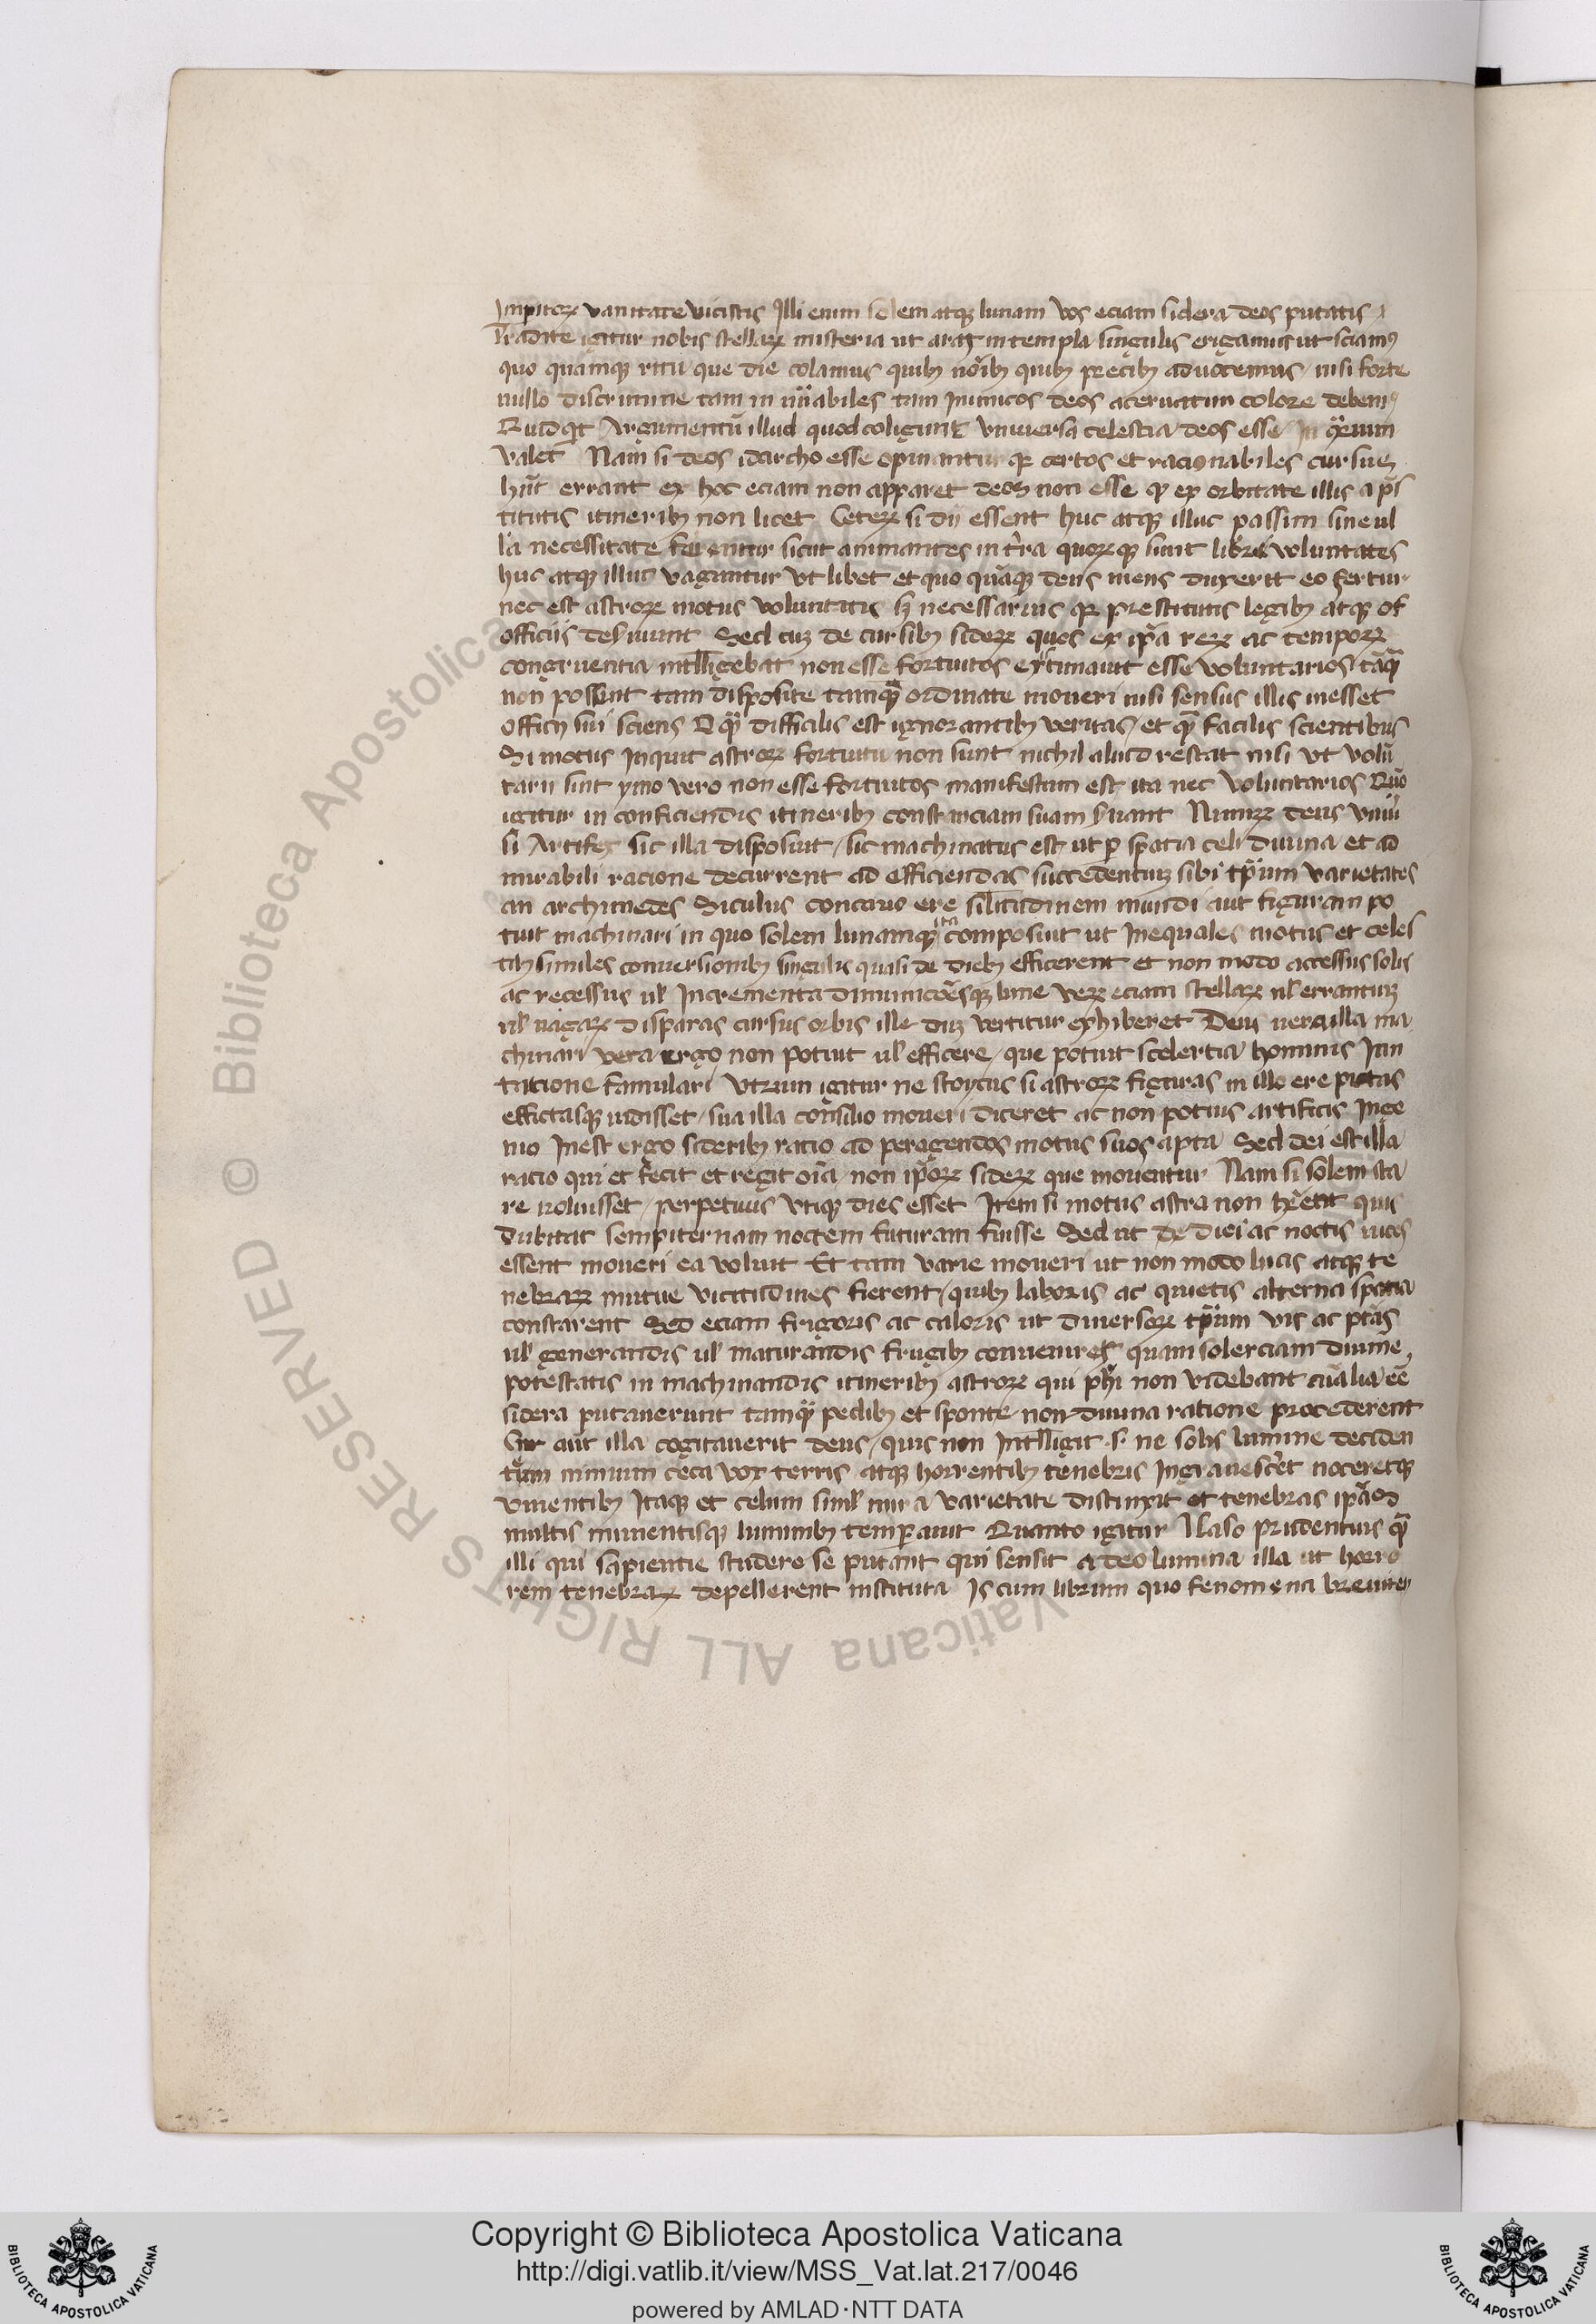 Impitoꝝ vanitate vicistis Illi enim solem atqꝫ lunam Vos eciam sidera deos putatis
Tradite igitur nobis stellaꝝ misteria ut aras in templa singulis erigamus ut sciamꝰ
quo quamqꝫ ritu que die colamus quibꝫ nōibꝫ quibꝫ precibꝫ advocemus / nisi forte
nullo discrimine tam in nūabiles tam Inimicos deos acervatim colore debemꝰ
Quid qt Argumentū illud quod coligunt Vniversa celestia deos esse In ꝯrium
valet Nam si deos idarcho esse opinantur qꝛ certos et racionabiles cursus
hn̄t errant ex hoc eciam non apparet deos non esse qꝫ ex orbitate illis a p̄s
titutis itineribꝫ non licet Ceteꝝ si dij essent huc atqꝫ illuc passim sine ul
la necessitate ferentur sicut animantes in tr̄ra quoꝝqꝫ sunt libr̄e voluntates
huc atqꝫ illuc vagantur Vt libet et quo quāqꝫ deus mens duxerit eo fertur
nec est astroꝝ motus voluntatis sꝫ necessarius qꝛ prestitutis legibꝫ atqꝫ of
officijs deſviunt Sed cuꝫ de cursibꝫ sideꝝ quos ex ip̄a reꝝ ac tempoꝝ
congruentia intll̄igebat non esse fortuitos exstimavit esse voluntarios tāqꝫ
non possent tam disposite tamqꝫ ordinate moveri nisi sensus illis inesset
officij sui sciens O qꝫ difficilis est ignorantibꝫ veritas / et qꝫ facilis scientibus
Si motus Inquit astroꝝ fortuitu non sunt nichil aliud restat nisi Vt volū
tarij sint ymo vero non esse fortuitos manifestum est ita nec Voluntarios Quō
igitur in conficiendis itineribꝫ constanciam suam ſuant Nimiꝝ deus vniu
si Artifex sic illa disposuit / sic machinatus est ut p spatia celi divina et ad
mirabili racione decurrent ad efficiendas succedentuꝫ sibi tp̄rum varietates
an archimedes Siculus concavo ere silitudinem mundi aut figuram po
tuit machinari in quo solem lunamqꝫ ita composuit ut Inequales motus et celes
tibꝫ similes conversionibꝫ singulis quasi de diebꝫ efficerent et non modo accessus solis
ac recessus ul̄ Incrementa diminucōesqꝫ lune veꝝ eciam stellaꝝ ul̄ errantuꝫ
ul̄ vagaꝝ disparas cursus orbis ille duꝫ vertitur exhiberet Deus vero illa ma
chinari vera ergo non potuit ul̄ efficere / que potuit scelertia hominis Im
tacione famulari Vtrum igitur ne stoycus si astroꝝ figuras in illo ere pictas
effictasqꝫ vidisset / sua illa consilio moveri diceret ac non potius artificis Inge
nio Inest ergo sideribꝫ ratio ad peragendos motus suos apta Sed dei est illa
racio qui et fecit et regit oīa / non ip̄oꝝ sideꝝ que moventur Nam si solem sta
re voluisset / perpetuus Vtiqꝫ dies esset Item si motus astra non hr̄ent quis
dubitat sempiternam noctem futuram fuisse Sed ut de diei ac noctis vices
essent moveri ea voluit Et tam varie moveri ut non modo lucis atqꝫ te
nebraꝝ mutue vicitudines fierent / quibꝫ laboris ac quietis alterna spatia
constarent Sed eciam frigoris ac caloris ut diversoꝝ tp̄rum vis ac ptās
ul̄ generandis ul̄ maturandis frugibꝫ conveniret quam solerciam divine
potestatis in machinandis itineribꝫ astroꝝ qui ph̄i non videbant aīalia eē
sidera putaverunt tamqꝫ pedibꝫ et sponte non divina ratione procederent
Cur aut illa cogitaverit deus / quis non Intll̄igit .s. ne solis lumine deciden
tum nimium ceca vox terris atqꝫ horrentibꝫ tenebris Ingravescret noceretqꝫ
viventibꝫ Itaqꝫ et celum siml̄ mira varietate distinxit et tenebras ip̄as
multis minentisqꝫ luminibꝫ temp̄avit Quanto igitur Naso prudentius qꝫ
illi qui sapientie studere se putant qui sensit a deo lumina illa ut horro
rem tenebraꝝ depellerent instituta Is cum librum quo fenomena breviter
Copyright © Biblioteca Apostolica Vaticana
http://digi.vatlib.it/view/MSS_Vat.lat.217/0046
powered by AMLAD·NTT DATA
© Biblioteca Apostolica Vaticana ALL RIGHTS RESERVED
BIBLIOTECA APOSTOLICA VATICANA
BIBLIOTECA APOSTOLICA VATICANA